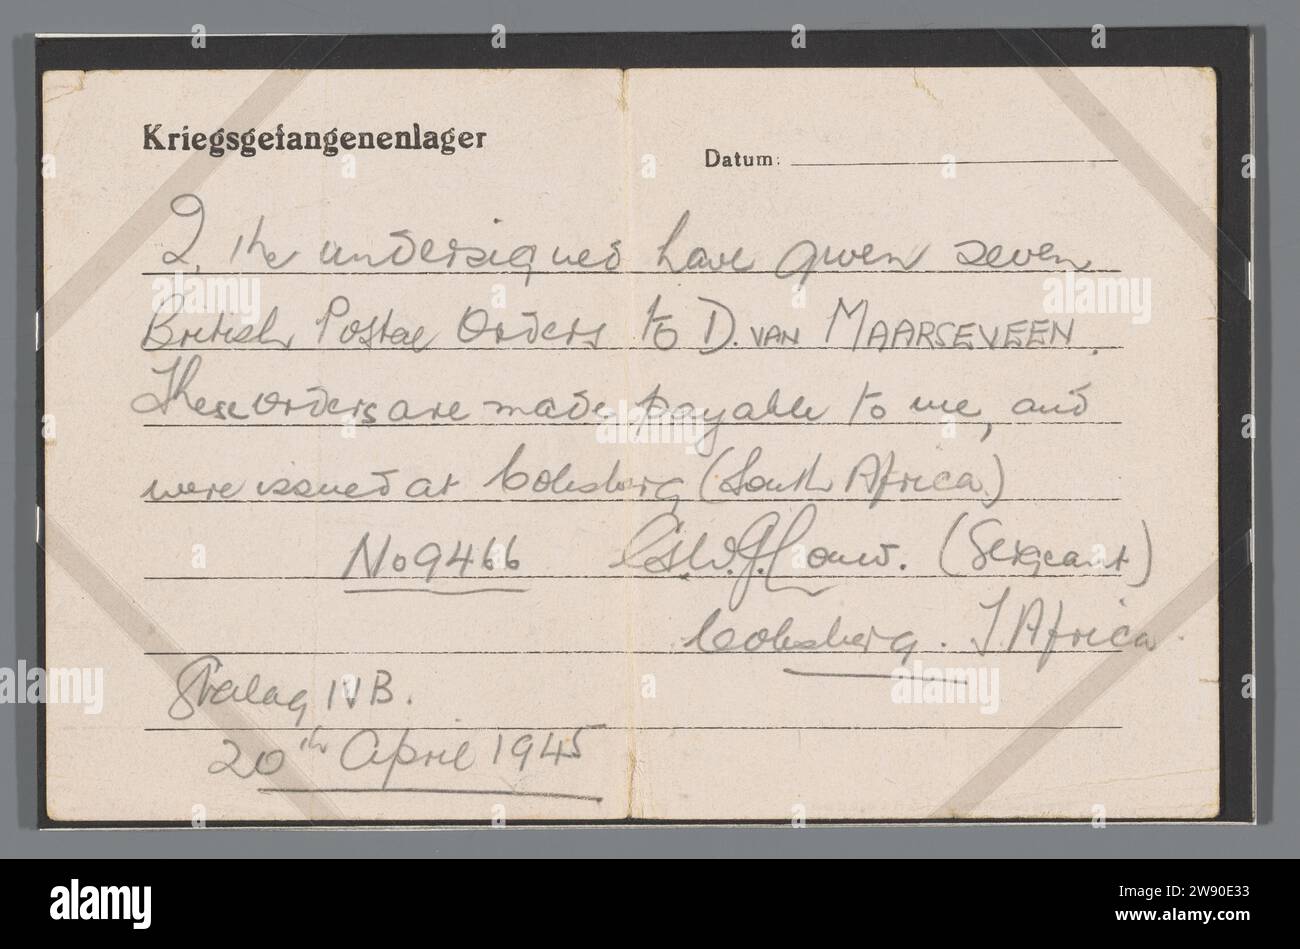 Kriegsgefangenenlager
Datum:
I, the undersigned have given seven
British Postal Orders to D. VAN MAARSEVEEN.
These orders are made payable to me, and
were issued at Colesberg (South Africa.)
No 9466 G.J. Louw. (Sergeant)
Colesberg. S. Africa.
Stalag IVB.
20th April 1945
alamy
Image ID: 2W90E33
www.alamy.com